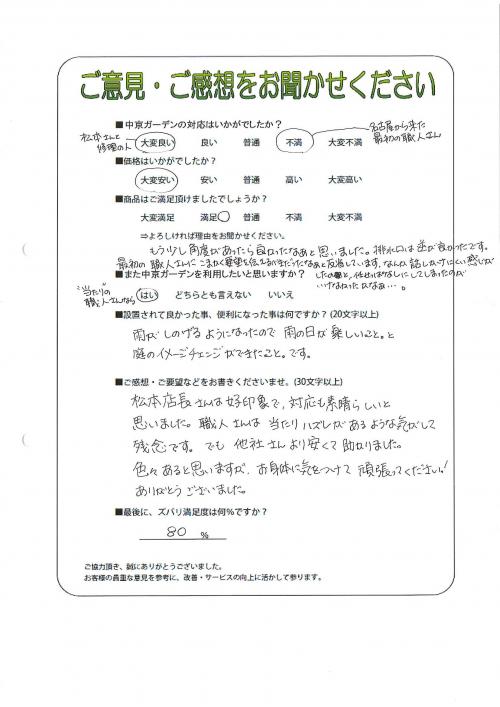 ご意見・ご感想をお聞かせください
■中京ガーデンの対応はいかがでしたか？
松本さんと
修理の人
大変良い　良い　普通　不満　大変不満
名古屋から来た
最初の職人さん
■価格はいかがでしたか？
大変安い　安い　普通　高い　大変高い
■商品はご満足頂けましたでしょうか？
大変満足　満足　普通　不満　大変不満
⇒よろしければ理由をお聞かせください。
もう少し角度があったら良かったなぁと思いました。排水口は逆が良かったです。
最初の職人さんにこまかく要望を伝えるべきだったなぁと反省しています。なんか話しかけにくい感じが
したの と、任せっぱなしにしてしまったのが
いけなかったかなぁ…。
■また中京ガーデンを利用したいと思いますか？
"当たり"の
職人さんなら
はい　どちらとも言えない　いいえ
■設置されて良かった事、便利になった事は何ですか？(20文字以上)
雨がしのげるようになったので雨の日が楽しいこと。と
庭のイメージチェンジができたこと。です。
■ご感想・ご要望などをお書きくださいませ。(30文字以上)
松本店長さんは好印象で、対応も素晴らしいと
思いました。職人さんは当たりハズレがあるような気がして
残念です。でも他社さんより安くて助かりました。
色々あると思いますが、お身体に気をつけて頑張ってください!
ありがとうございました。
■最後に、ズバリ満足度は何％ですか？
80 ％
ご協力頂き、誠にありがとうございました。
お客様の貴重な意見を参考に、改善・サービスの向上に活かして参ります。